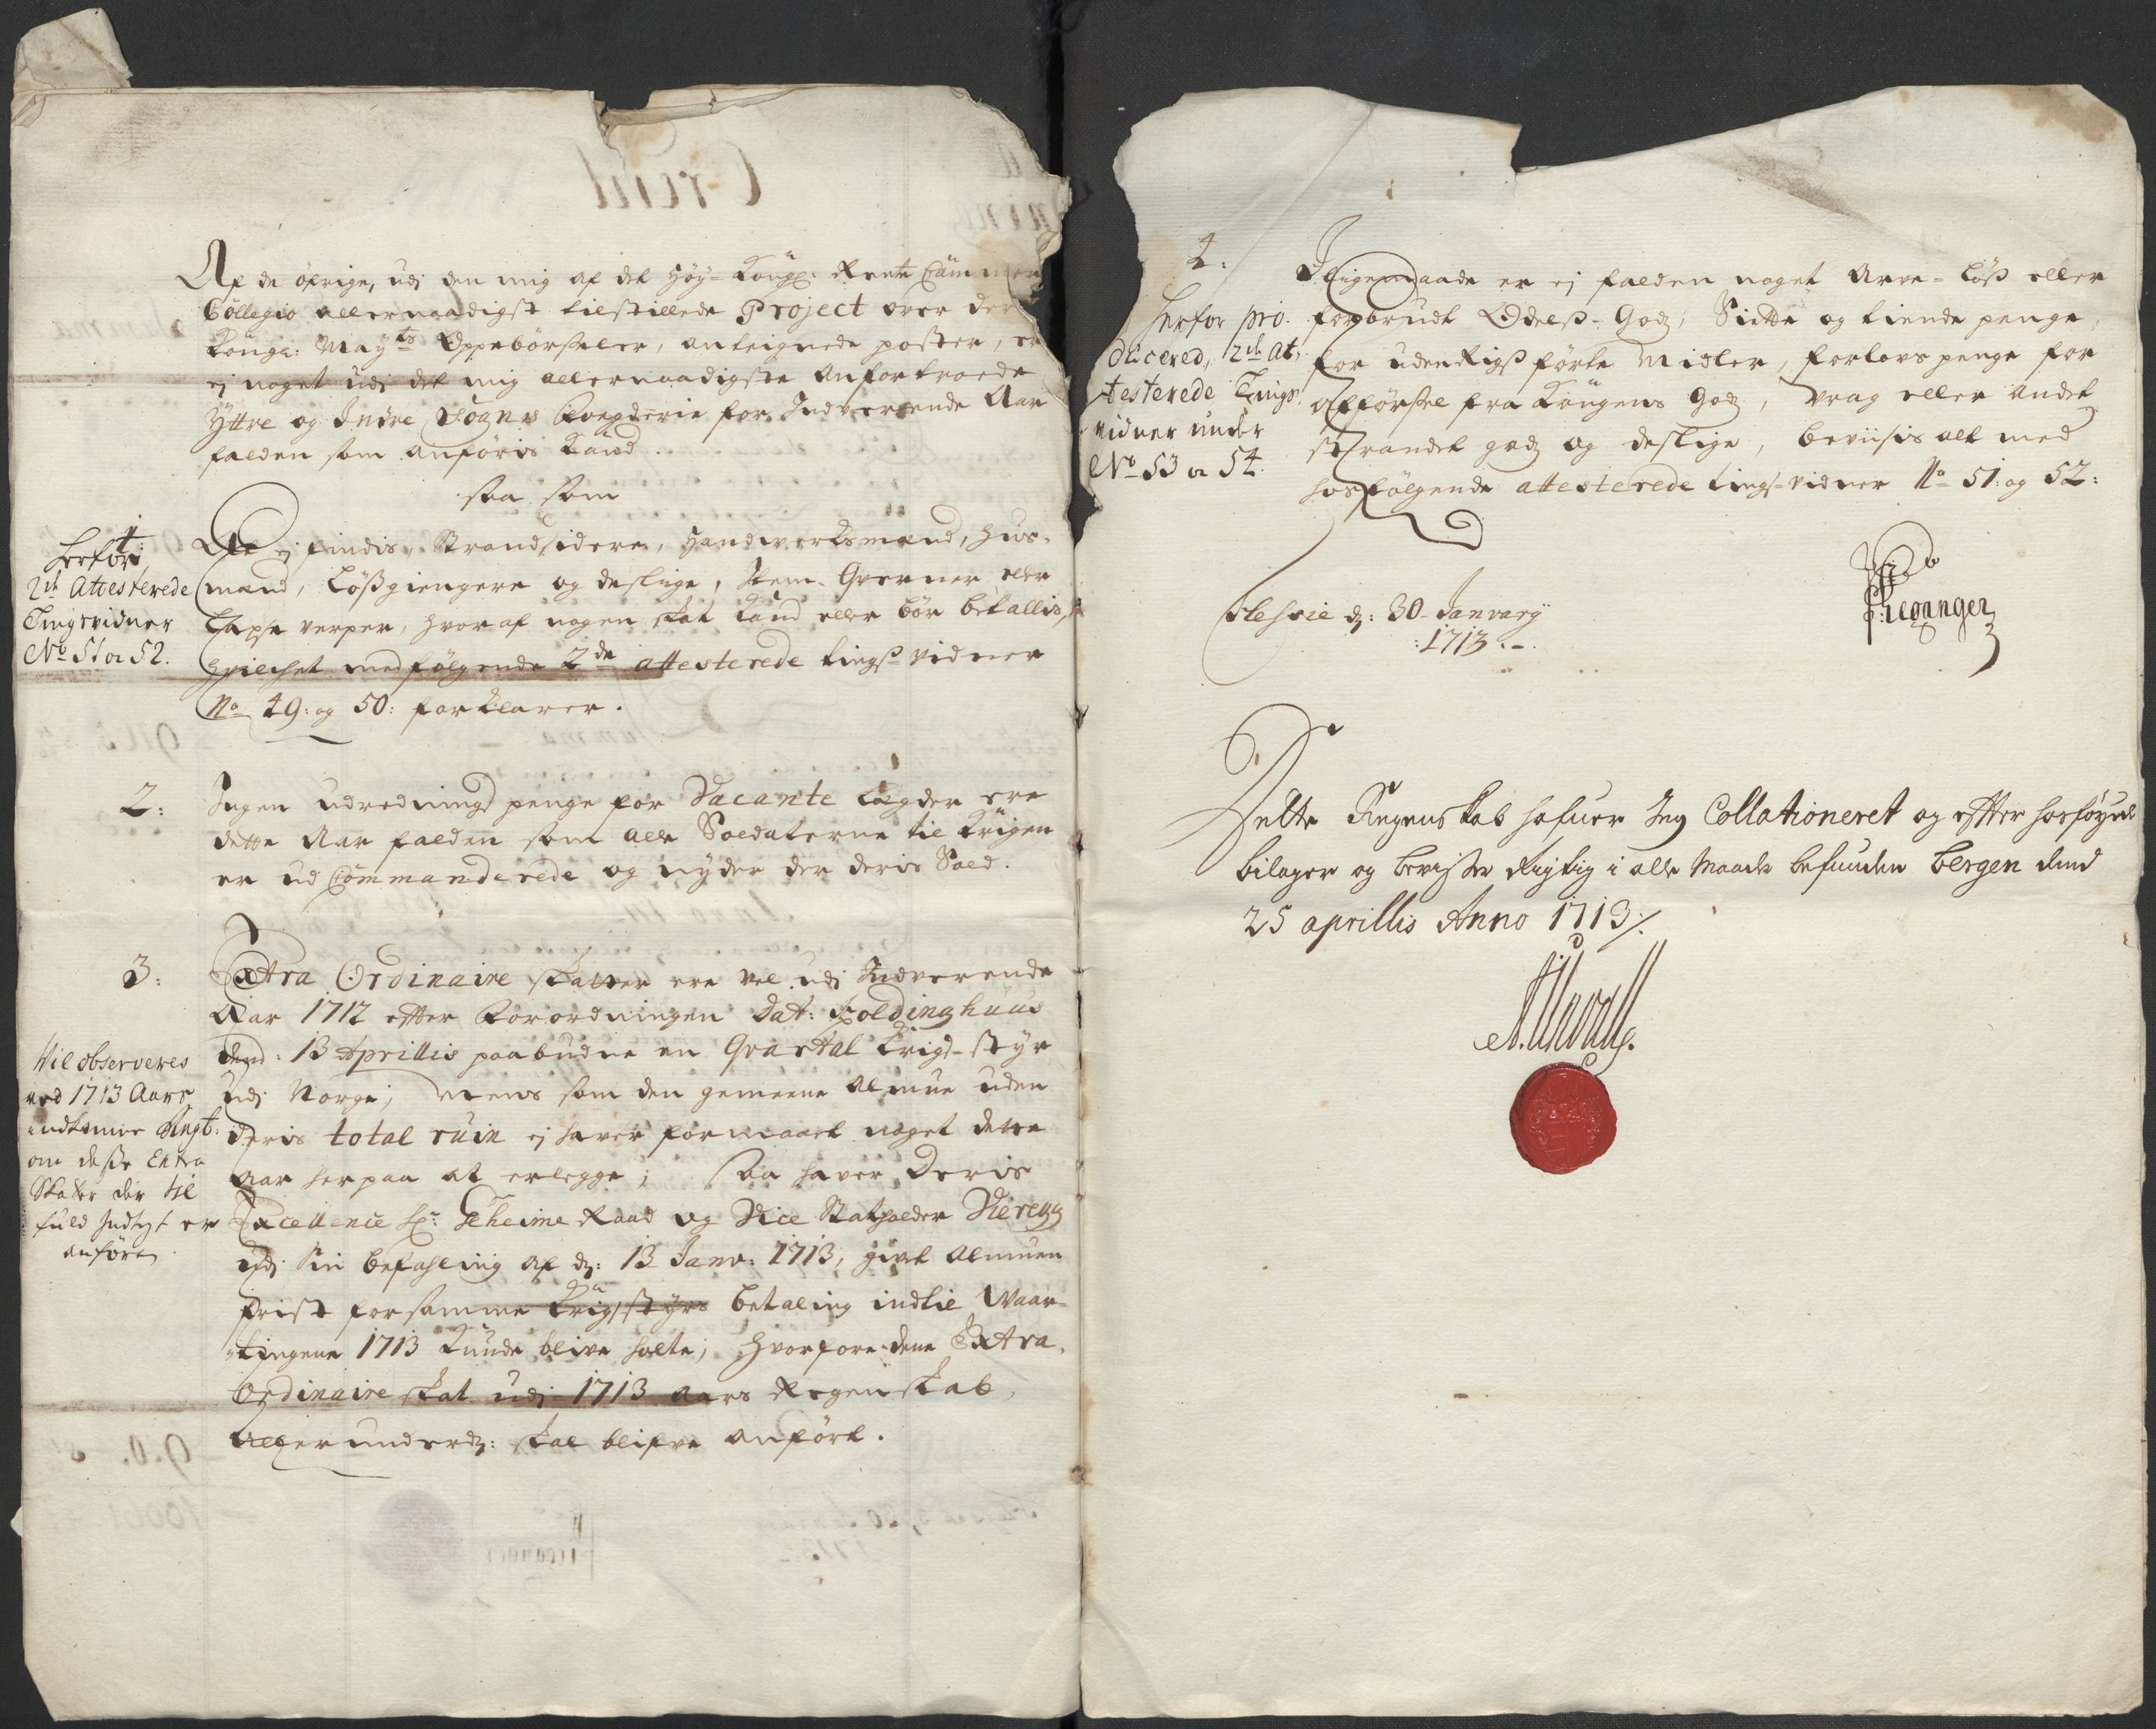 Af de öfrige, udj den mig af det Höy-Kongl: Rente Cammer
Collegio allernaadigst tilstillede Project over der
Konge: Mayts Oppebörseler, anteignede poster, er
ej noget udj det mig allernaadigste anfortroede
Yttre og Indre Sogns Fogderie for Indverende Aar
falden som anföris kand.
saa som
1.
At ej findis, Strandsidere, Handverksmænd, Huus-
mænd, Lößgiengere og deslige, Item Qverner eller
Tapse verper, hvoraf nogen skat kand eller bör betallis,
hvilchet medfölgende 2de attesterede tings-vidner
No 49: og 50: forklarer.
herfor
2de Attesterede
Tingsvidner
No 51 og 52.
2: Ingen udrednings penge for Vacante Lægder ere
dette Aar falden som alle Soldaterne til Krigen
er ud Commanderede og nyder der deris Sold.
3: Extra Ordinaire skatter ere vel udj Indverende
Aar 1712 efter Forordningen Dat: Koldinghuus
dend: 13 Aprillis paabudne en Qvartal Krigs-styr
udj Norge; mens som den gemeene Almue uden
deris total ruin ej haver formaaet noget dette
Aar herpaa at erlegge; saa haver Deris
Excellence Hr: Geheime Raad og Vice Statholder Vieregg
udj Sin befahling af d: 13 Janv: 1713, givet Almuen
frist for samme Krigsstyrs betaling indtil Waar-
tingene 1713 kunde blive holte; hvorfore dene Extra
Ordinaire skat udj 1713 aars Regenskab,
allerunderd: skal blifve anfört.
Vil observeres
ved 1713 Aars
indkomne Regt:
om deße Extra
Skatter der til
fuld Indtegt er
anföre
4: Iligemaade er ej falden noget Arve-Löß eller
forbrudt Odelß-Godz, Siette og tiende penge,
for udenRigß förte Midler, forlovs penge for
afförßel fra Kongens Godz, vrag eller andet
strandet godz og deslige, bevisis alt med
hosfölgende attesterede tings-vidner No 51: og 52:
herfor pro-
ducered, 2de At-
testerede Tings
vidner under
No 53 og 54.
d: 30 Janvarij
1713.
Dette Regenskab hafuer Jeg Collationeret og efter hosföyede
bilager og beviser Rigtig i alle Maader befunden Bergen dend
25 aprillis Anno 1713